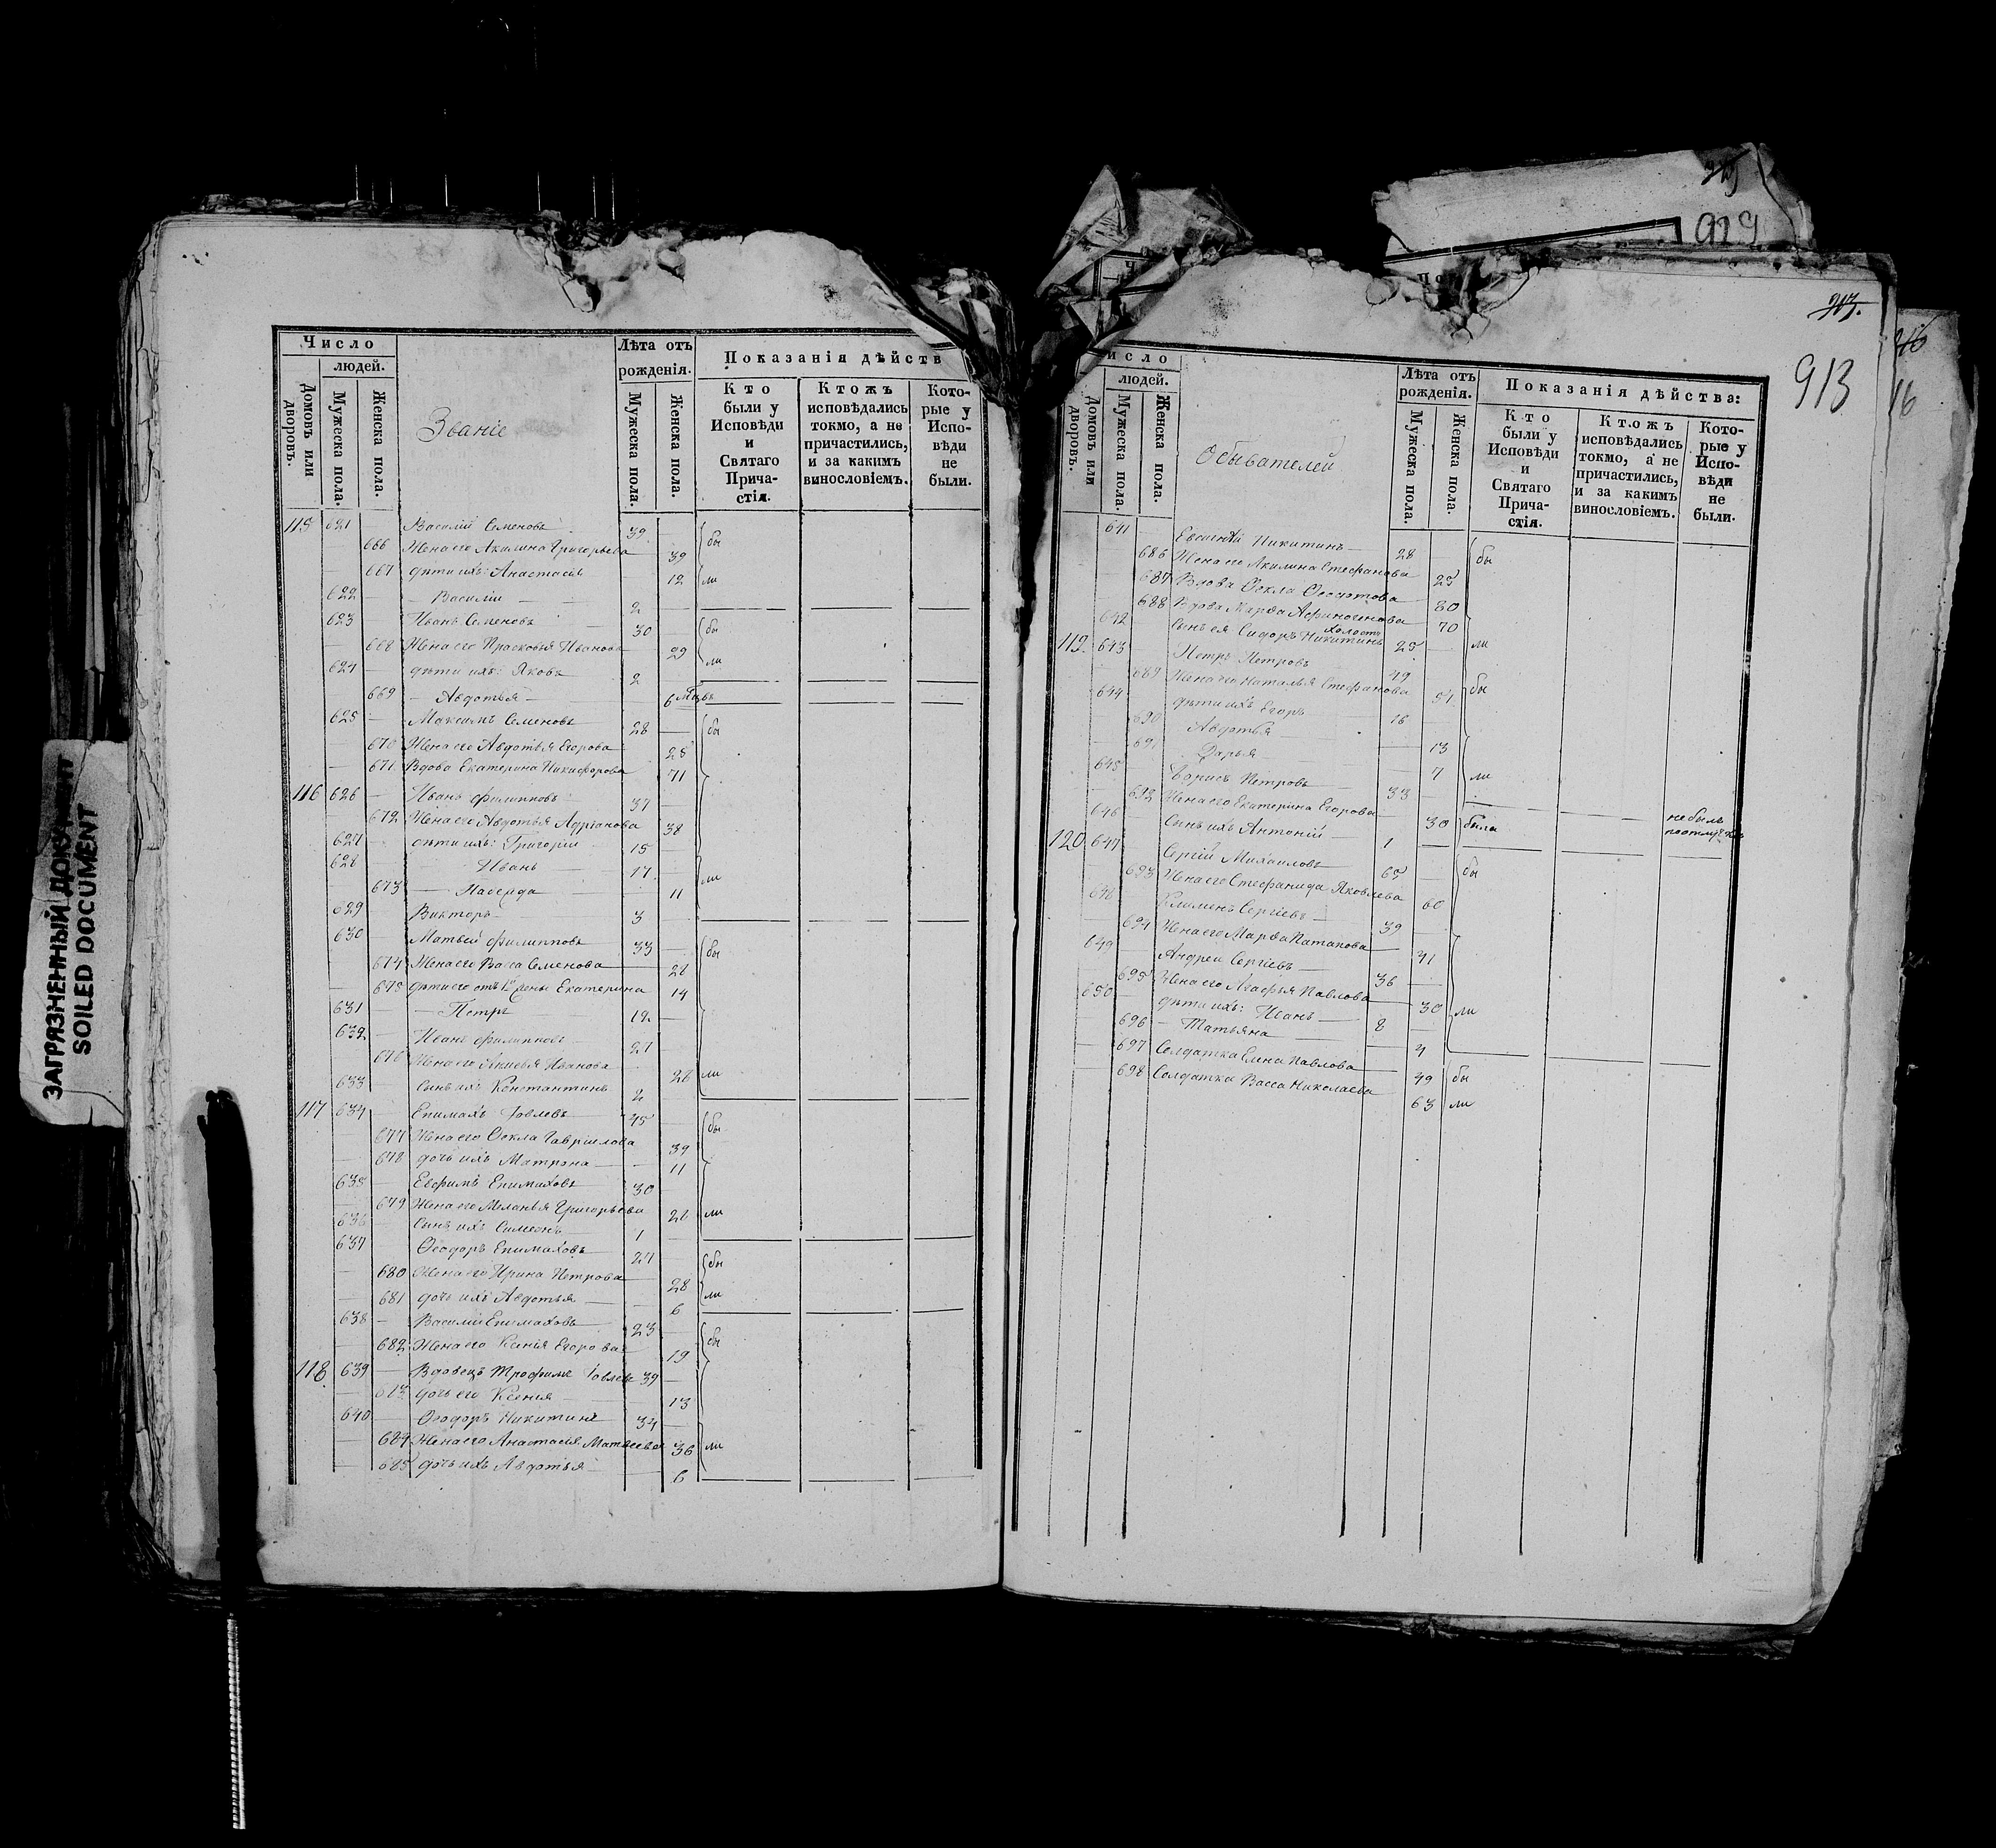 ЗАГРЯЗНЕННЫЙ ДОКУМЕНТ
SOILED DOCUMENT
919
913
16
Число
людей.
Домовъ или дворовъ.
Мужеска пола.
Женска пола.
Званіе
Лѣта отъ рожденія.
Мужеска пола.
Женска пола.
Показанія дѣйств
Кто были у Исповѣди и Святаго Прича-стія.
Ктожъ исповѣдались токмо, а не причастились, и за какимъ винословіемъ.
Кото-рые у Испо-вѣди не были.
115 621 — Василій Семеновъ 39 — бы
666 Жена его Акилина Григорьева 39
667 дѣти ихъ: Анастасія 12 ли
622 — Василій — 2
623 — Иванъ Семеновъ 30 — бы
668 Жена его Прасковья Иванова 29 ли
624 — дѣти ихъ: Яковъ 2
669 — Авдотья — 6 мцвъ
625 — Максимъ Семеновъ 28 — бы
670 Жена его Авдотья Егорова 28
671 Вдова Екатерина Никифорова 71
116 626 — Иванъ Филипповъ 37
672 Жена его Авдотья Адріанова 38
627 дѣти ихъ: Григорій 15
628 Иванъ — 17 ли
673 — 11
629 Викторъ — 3
630 Матвей Филипповъ 33 — бы
674 Жена его Васса Семенова 28
675 дѣти его отъ 1й жены Екатерина 14
631 — Петръ 12 —
632 — Иванъ Филипповъ 27
676 Жена его Иванова 28 ли
633 — сынъ ихъ Константинъ 2
117 634 — Епимахъ Іовлевъ 45 бы
677 Жена его Ѳекла Гавріилова 39
678 дочь ихъ Матрона — 11
635 — Евфимъ Епимаховъ 30
679 Жена его Меланья Григорьева 28 ли
636 сынъ ихъ Симеонъ 1
637 Ѳеодоръ Епимаховъ 27 бы
680 Жена его Ирина Петрова 28
681 дочь ихъ Авдотья — 6 ли
638 — Василій Епимаховъ 23
682 Жена его Ксенія Егорова 19 бы
118 639 — Вдовецъ Трофимъ Іовлевъ 39 —
683 дочь его Ксенія 13
640 — Ѳеодоръ Никитинъ 34 —
684 Жена его Анастасія Матвеева 36 ли
685 дочь ихъ Авдотья 6
исло
людей.
Домовъ или дворовъ.
Мужеска пола.
Женска пола.
Обывателей
Лѣта отъ рожденія.
Мужеска пола.
Женска пола.
Показанія дѣйства:
Кто были у Исповѣди и Святаго Прича-стія.
Ктожъ исповѣдались токмо, а не причастились, и за какимъ винословіемъ.
Кото-рые у Испо-вѣди не были.
641 Евсигній Никитинъ — 28 — бы
686 Жена его Акилина Стефанова 25
687 Вдова Ѳекла 80
688 Вдова Марфа Афиногенова 70
642 сынъ ея Сидоръ Никитинъ холостъ 25 — ли
119 643 — Петръ Петровъ 49
689 Жена его Наталья Стефанова 51 бы
644 дѣти ихъ Егоръ 16
690 Авдотья — 13
691 Дарья 7 ли
645 Борисъ Петровъ — 33 — не былъ
692 Жена его Екатерина Егорова 30 была
646 сынъ ихъ Антоній — 1
120 647 Сергій Михаиловъ 65 бы
693 Жена его Стефанида Яковлева 60
648 Климентъ Сергіевъ — 39
694 Жена его Марфа Патапова 41
649 Андрей Сергіевъ — 36 —
695 Жена его Агафья Павлова 30 ли
650 — дѣти ихъ: Иванъ — 8 —
696 — Татьяна — 4
697 Солдатка Елена Павлова 49 бы
698 Солдатка Васса Николаева 63 ли